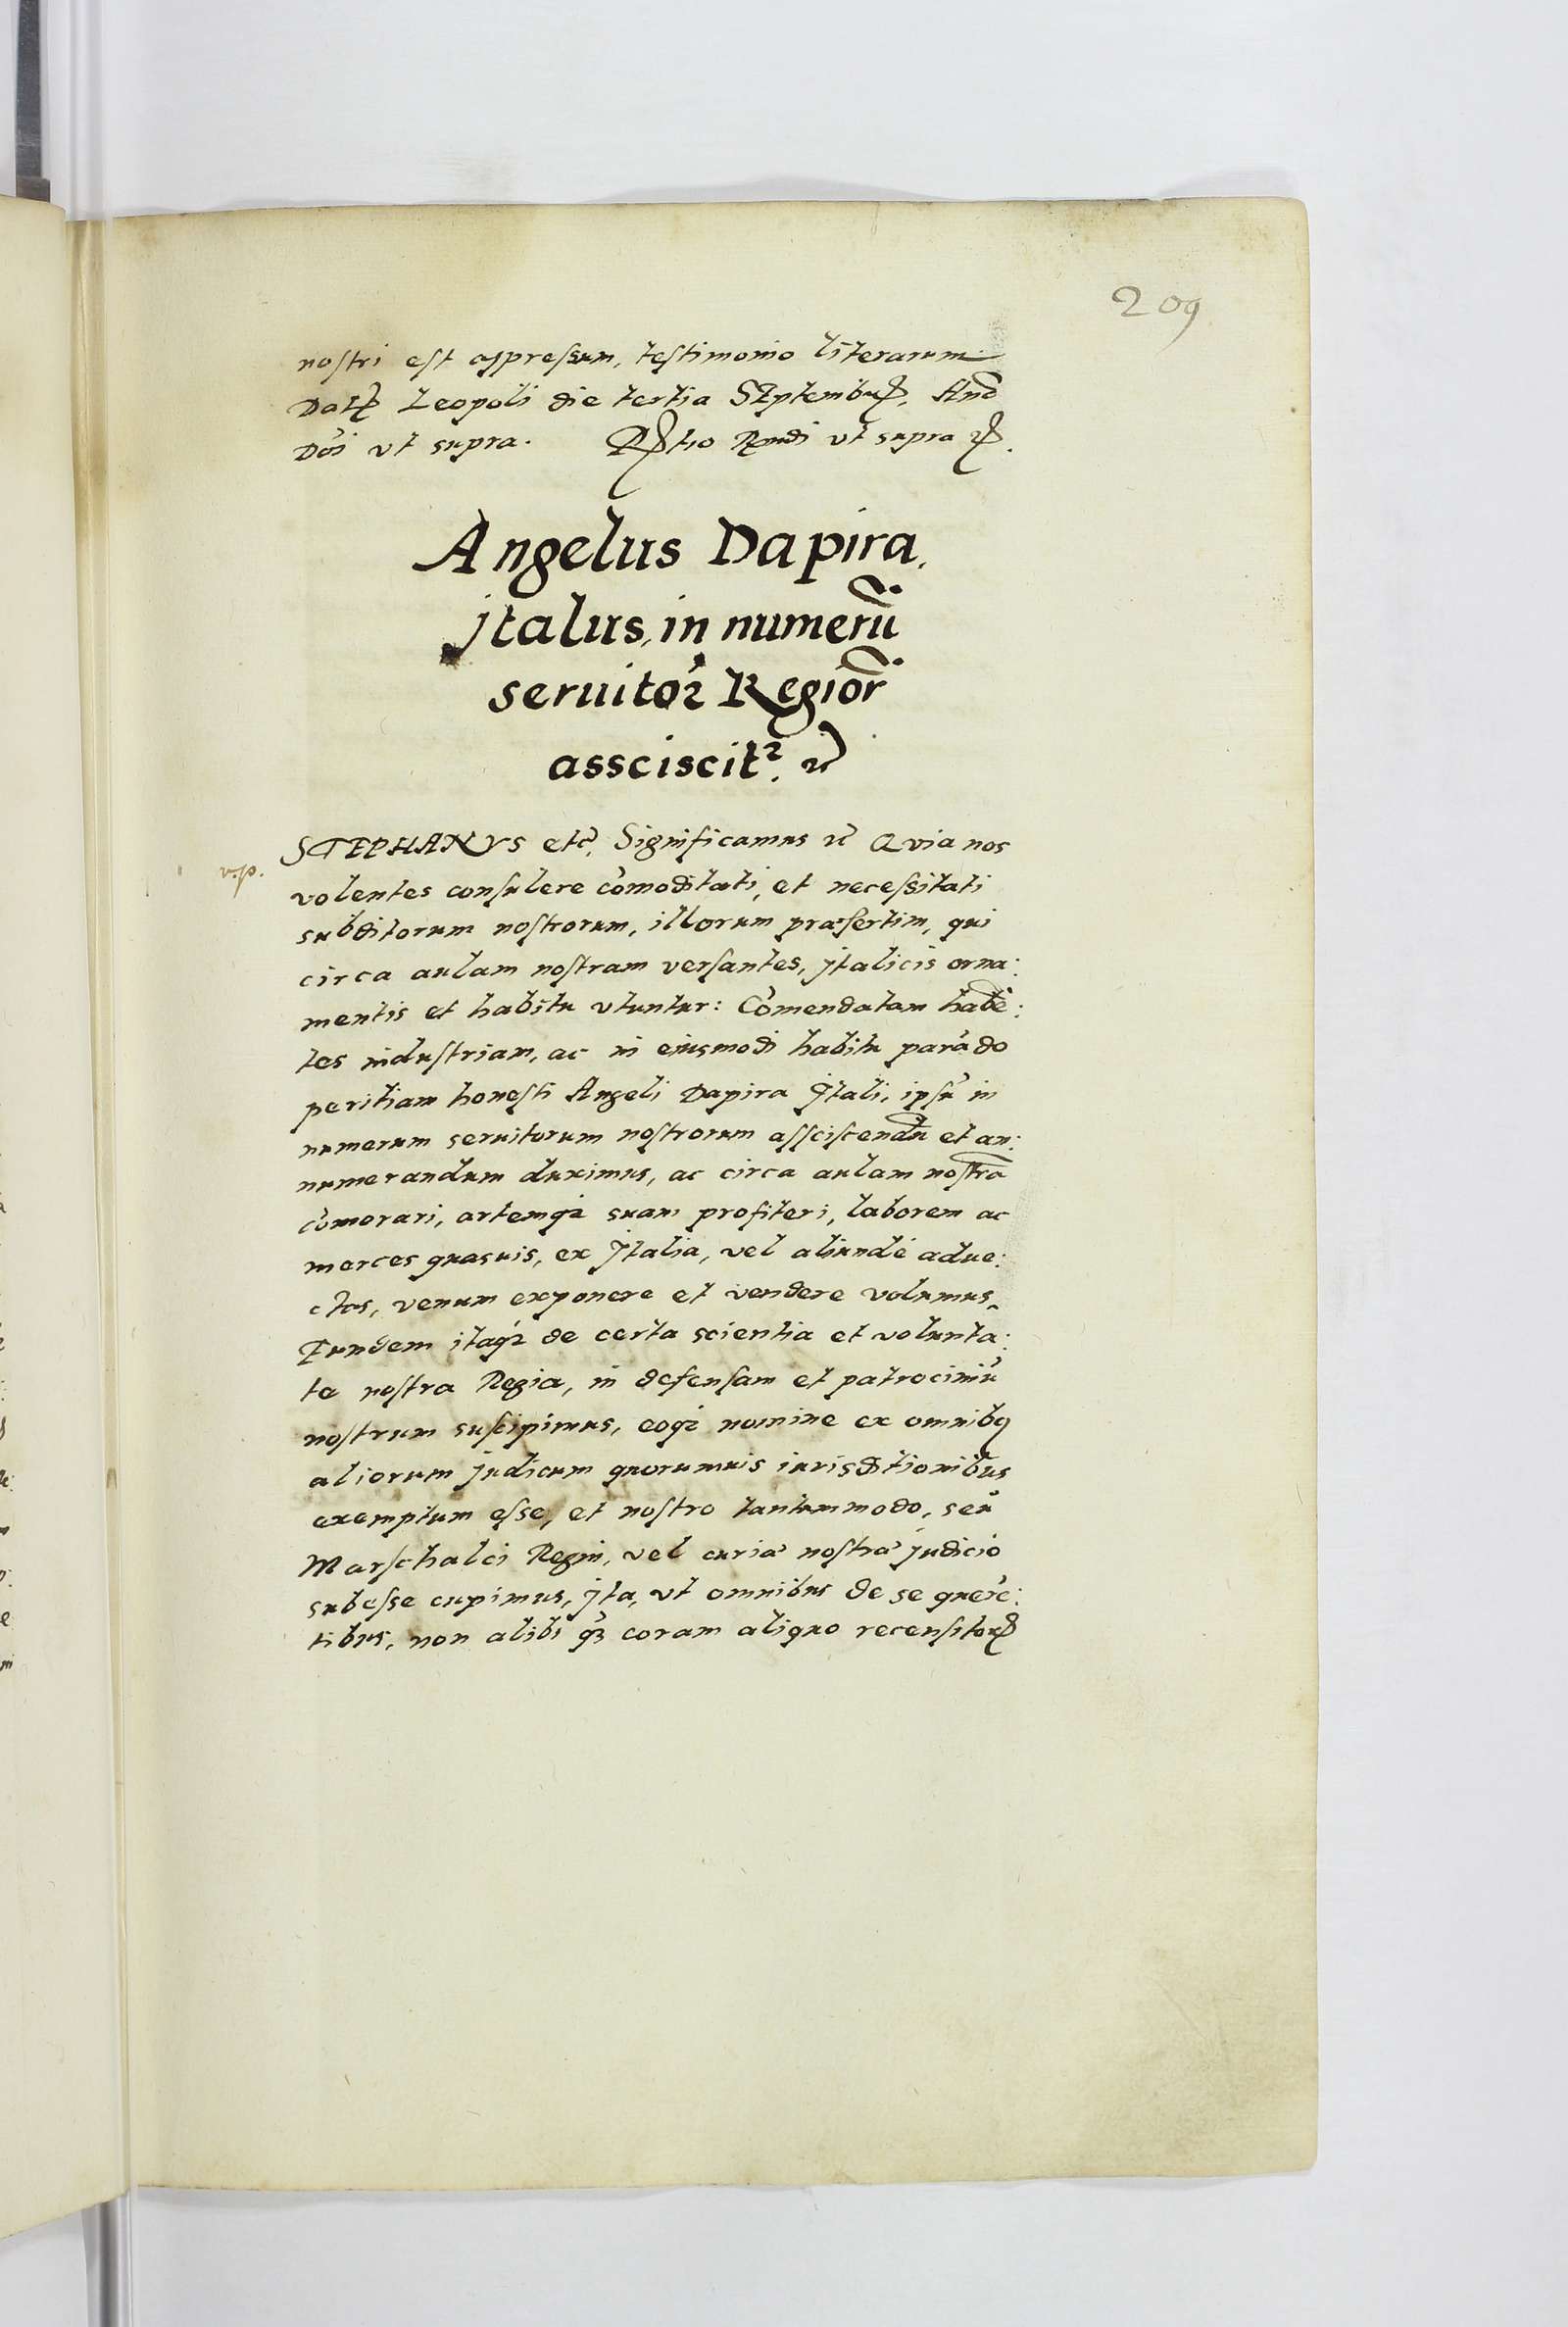 209
nostri est appressum, testimonio literarum
Dat Leopoli die tertia Septembr, Anō
Dni vt supra. Rltio Rndi vt supra
Angelus Dapira,
jtalus, in numerū
seruitoꝝ Regior
assciscitᵣ. ꝛc
STEPHANVS etc̄, Significamus ꝛc Quia nos
v.p.
volentes consulere cōmoditati, et necessitati
subditorum nostrorum, illorum præsertim, qui
circa aulam nostram versantes, jtalicis orna:
mentis et habitu vtuntur: Cōmendatam habē:
tes industriam, ac in eiusmodi habitu parādo
peritiam honesti Angeli Dapira Jtali, ipsū in
numerum seruitorum nostrorum assciscendū et an:
numerandum duximus, ac circa aulam nostrā
cōmorari, artemqꝫ suam profiteri, laborem ac
merces quasuis, ex Jtalia, vel aliunde adue:
ctas, venum exponere et vendere volumus,
Eundem itaqꝫ de certa scientia et volunta:
te nostra Regia, in defensam et patrociniū
nostrum suscipimus, eoqꝫ nomine ex omnibꝯ
aliorum judicum quorumuis iurisditionibus
exemptum esse, et nostro tantummodo, seu
Marschalci Regni, vel curiæ nostræ judicio
subesse cupimus, jta, vt omnibus de se querē:
tibus, non alibi qꝫ coram aliquo recensitor